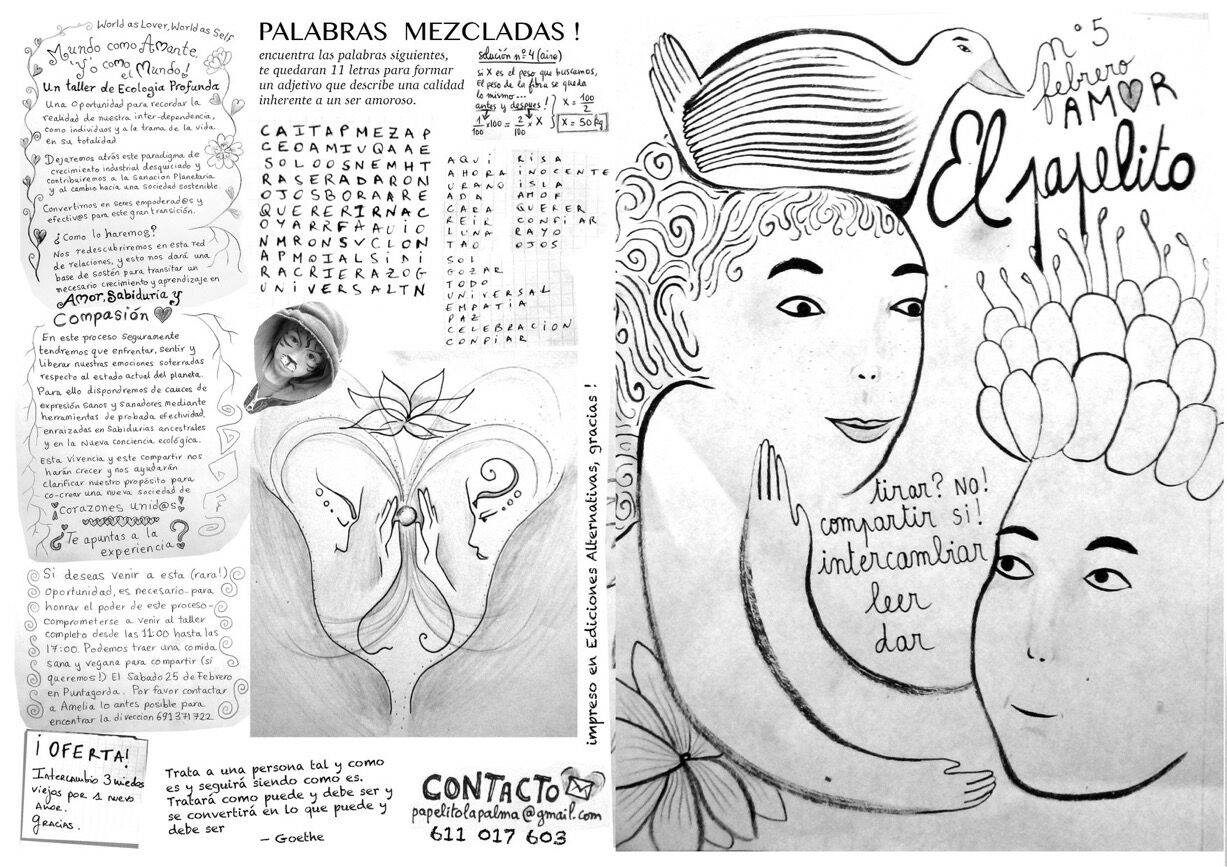 World as Lover, World as Self
Mundo como Amante
Y yo como
el Mundo!
Un taller de Ecologia Profunda
Una Oportunidad para recordar la
realidad de nuestra inter-dependencia,
como individuos y a la trama de la vida
en su totalidad
Dejaremos atrás este paradigma de
crecimiento industrial desquiciado y
contribuiremos a la Sanacion Planetaria
y al cambio hacia una Sociedad sostenible.
Convertirnos en seres empoderad@s y
efectiv@s para este gran transición.
¿Como lo haremos?
Nos redescubriremos en esta red
de relaciones, y esto nos dará una
base de sostén para transitar un
necesario crecimiento y aprendizaje en
Amor, Sabiduria y
Compasión
En este proceso seguramente
tendremos que enfrentar, sentir y
liberar nuestras emociones soterradas
respecto al estado actual del planeta.
Para ello dispondremos de cauces de
expresión sanos y sanadores mediante
herramientas de probada efectividad,
enraizadas en Sabidurias ancestrales
y en la Nueva conciencia ecológica.
Esta Vivencia y este compartir nos
harán crecer y nos ayudarán
clarificar nuestro propósito para
co-crear una nueva sociedad de
¡corazones unid@s!
¿Te apuntas a la
experiencia?
Si deseas venir a esta (rara!)
Oportunidad, es necesario-para
honrar el poder de este proceso-
comprometerse a venir al taller
completo desde las 11:00 hasta las
17:00. Podemos traer una comida
sana y vegana para compartir (si
queremos!) El Sabado 25 de Febrero
en Puntagorda. Por favor contactar
a Amelia lo antes posible para
encontrar la diveccion 691371722
¡OFERTA!
Intercambio 3 miedos
viejos por 1 nuevo
Amor.
Gracias.
PALABRAS MEZCLADAS !
encuentra las palabras siguientes,
te quedaran 11 letras para formar
un adjetivo que describe una calidad
inherente a un ser amoroso.
solución nº4 (aire)
si X es el peso que buscamos,
El peso de la fibra se queda
lo mismo...
antes y despues!
1/100 x100 = 2/100 X
X = 100/2
X = 50 Kg
CAITAPMEZAP
CEOAMIUQAAE
SOLOOSNEMHT
RASERADARON
OJOSBORAARE
QUERERIRNAC
OYARRFAAUIO
NMRONSVCLON
APMOIALSIDI
RACRIERAZOG
UNIVERSALTN
AQUI RISA
AHORA INOCENTE
URANO ISLA
ADA AMOR
CARA QUERER
REIR CONFIAR
LUNA RAYO
TAO OJOS
SOL
GOZAR
TODO
UNIVERSAL
EMPATIA
PAZ
CELEBRACION
CONFIAR
impreso en Ediciones Alternativas, gracias !
Trata a una persona tal y como
es y seguirá siendo como es.
Tratará como puede y debe ser y
se convertirá en lo que puede y
debe ser
— Goethe
CONTACTO
papelitolapalma@gmail.com
611 017 603
nº5
febrero
AMOR
El papelito
tirar? NO!
compartir si!
intercambiar
leer
dar